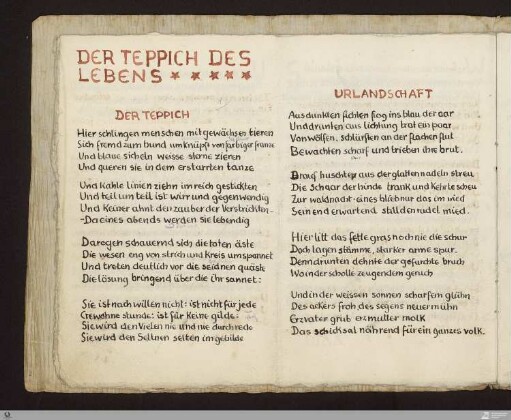 DER TEPPICH DES
LEBENS ★ ★ ★ ★ ★
DER TEPPICH
Hier schlingen menschen mit gewächsen tieren
Sich fremd zum bund umknüpft von farbiger franze
Und blaue sicheln weisse sterne zieren
Und queren sie in dem erstarrten tanze
Und kahle linien ziehn im reich gestickten
Und teil um teil ist wirr und gegenwendig
Und keiner ahnt den zauber der verstrickten..
-Da eines abends werden sie lebendig
Da regen schauernd sich die toten äste
Die wesen eng von strich und kreis umspannet
Und treten deutlich vor die seidnen quäste
Die lösung bringend über die ihr sannet:
Sie ist nach willen nicht: ist nicht für jede
Gewohne stunde: ist für keine gilde:
Sie wird den vielen nie und nie durch rede
Sie wird den seltnen selten im gebilde
URLANDSCHAFT
Aus dunklen fichten flog ins blau der aar
Und drunten aus lichtung trat ein paar
Von wölfen, schlürften an der flachen flut
Bewachten scharf und trieben ihre brut.
Drauf huschte aus der glatten nadeln streu
Die Schaar der hinde trank und kehrte scheu
Zur waldnacht - eines blieb nur das im ried
Sein end erwartend still den rudel mied.
Hier litt das fette gras noch nie die schur
Doch lagen stämme, starker arme spur,
Denn drunten dehnte der gefurchte bruch
Wo in der scholle zeugendem geruch
Und in der weissen sonnen scharfem glühn
Des ackers froh des segens neuer mühn
Erzvater grub erzmutter molk
Das schicksal nährend für ein ganzes volk.